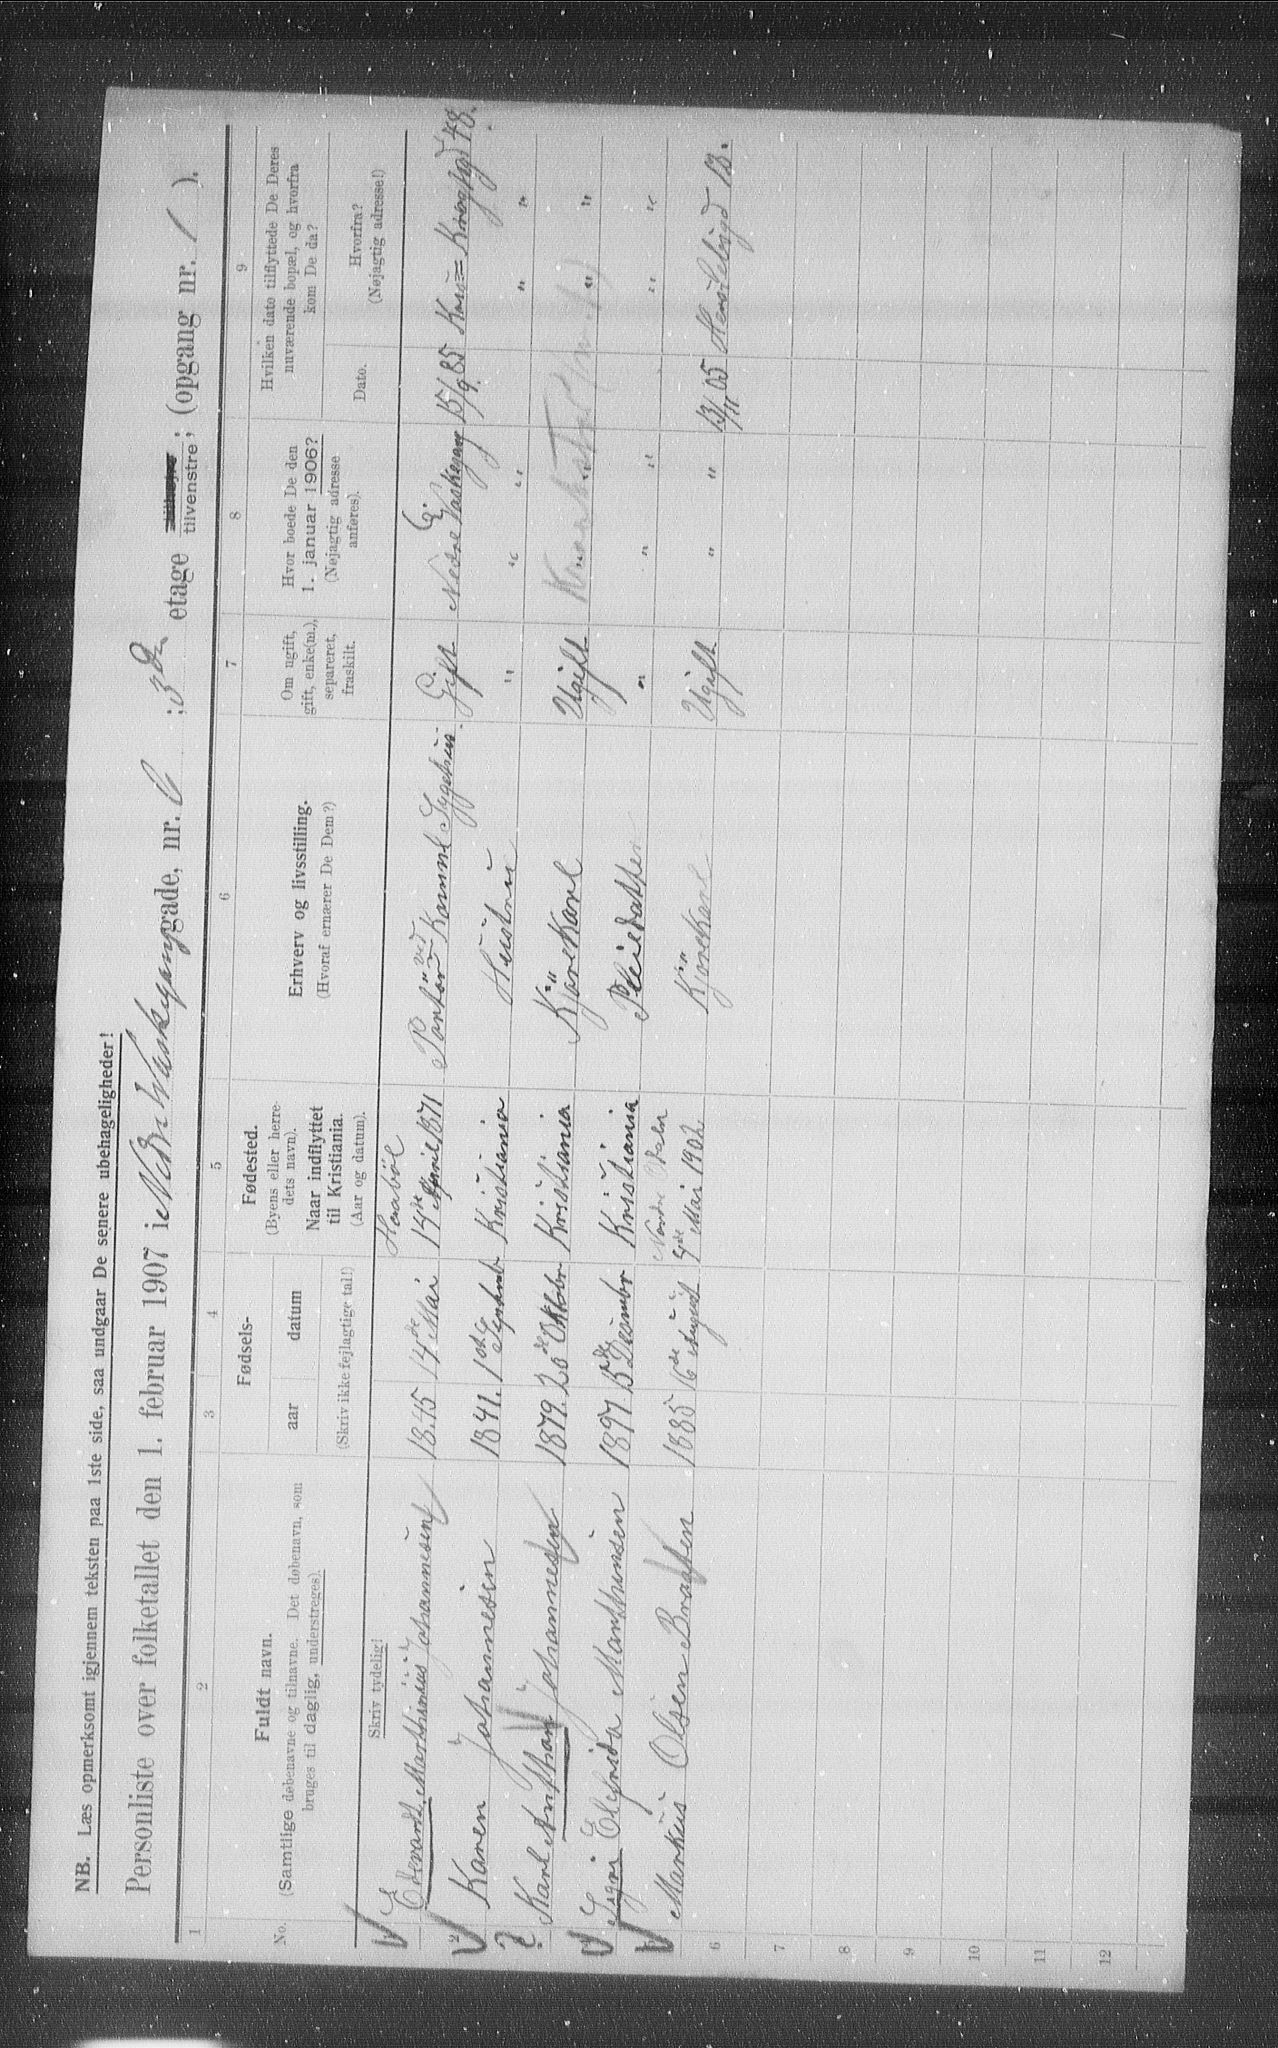 NB. Læs opmerksomt igjennem teksten paa 1ste side, saa undgaar De senere ubehageligheder!
Personliste over folketallet den 1. februar 1907 i Nedre Vaskegang gade, nr. 6 ; 3die etage tilvenstre; (opgang nr. 1 ).
1 2 3 4 5 6 7 8 9
No.
Fuldt navn.
(Samtlige døbenavne og tilnavne. Det døbenavn, som
bruges til daglig, understreges).
Skriv tydelig!
Fødsels-
aar datum
(Skriv ikke fejlagtige tal!)
Fødested.
(Byens eller herre-
dets navn).
Naar indflyttet
til Kristiania.
(Aar og datum).
Erhverv og livsstilling.
(Hvoraf ernærer De Dem?)
Om ugift,
gift, enke(m.),
separeret,
fraskilt.
Hvor boede De den
1. januar 1906?
(Nøjagtig adresse
anføres).
Hvilken dato tilflyttede De Deres
nuværende bopæl, og hvorfra
kom De da?
Dato.
Hvorfra?
(Nøjagtig adresse!)
Edevardt Marthinius Johannesen 1845 14de Mai Haabøl 14de April 1871 Portør ved Komml Sygehus. Gift Nedre Vaskegang 6 15/9 85 Kroghsgd 48.
2 Karen Johannesen 1841. 1ste Septembr Kristiania Hustru " " " " "
? Karl Anthon Johannesen 1879. 20de Oktobr Kristiania Kjørekarl Ugift " "
Signe Elfrida Marthinsen 1897 15de Desembr Kristiania Pleiedatter " " " " "
Markus Olsen Braaten 1885 16de August Nordre Odalen Mai 1902 Kjørekarl Ugift " " 13/11 05 13.
6
7
8
9
10
11
12